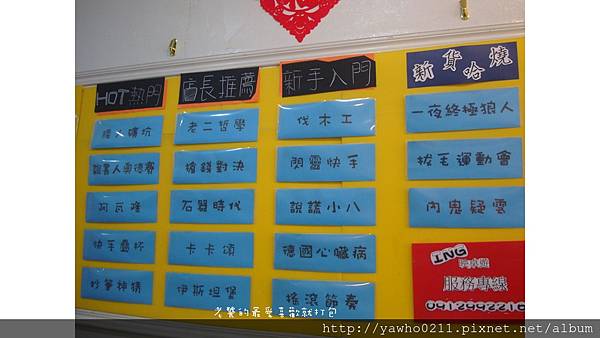 HOT熱門
矮人礦坑
說書人奧德賽
阿瓦隆
快手疊杯
妙筆神猜
店長推薦
老二哲學
搶錢對決
石器時代
卡卡頌
伊斯坦堡
新手入門
伐木工
閃靈快手
說謊小八
德國心臟病
搖滾節奏
新貨哈燒
一夜終極狼人
拔毛運動會
內鬼疑雲
ING
服務專線
0912992216
老饕的最愛喜歡就打包
http://yawho0211.pixnet.net/album